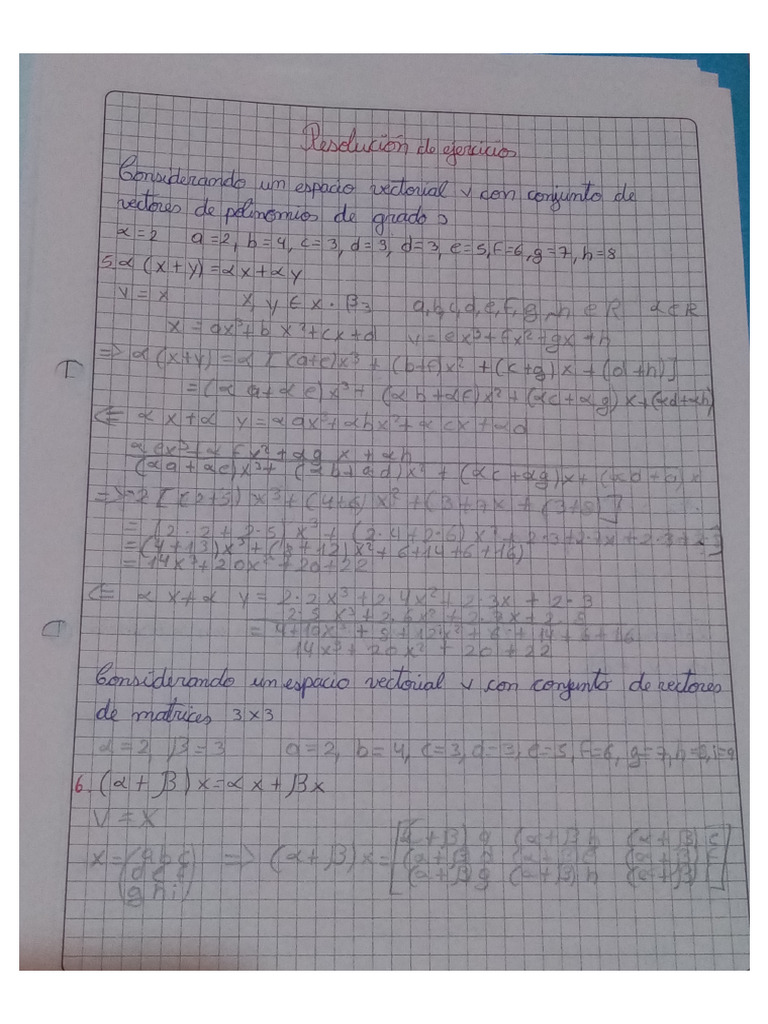 Resolución de ejercicios
Considerando un espacio vectorial v con conjunto de
vectores de polinomios de grado 3
α=2 a=2, b=4, c=3, d=3, d=3, e=5, f=6, g=7, h=8
5. α(x+y)=αx+αy
v=x x,y ∈ x·β3 a,b,c,d,e,f,g,h ∈ R α∈R
x=ax³+bx²+cx+d y=ex³+fx²+gx+h
=> α(x+y)=α[(a+e)x³+(b+f)x²+(c+g)x+(d+h)]
=(αa+αe)x³+(αb+αf)x²+(αc+αg)x+(αd+αh)
<= αx+αy=αax³+αbx²+αcx+αd
αex³+αfx²+αgx+αh
(αa+αe)x³+(αb+αd)x²+(αc+αg)x+
=> 2[(2+5)x³+(4+6)x²+(3+7x+(3+8)]
=(2·2+2·5)x³+(2·4+2·6)x²+2·3+2·7x+2·3+
=(4+13)x³+(8+12)x²+6+14+6+16)
=14x³+20x²+20+22
<= αx+αy=2·2x³+2·4x²+2·3x+2·3
2·5x³+2·6x²+2·7x+2·8
=4+10x³+8+12x²+6+14+6+16
14x³+20x²+20+22
Considerando un espacio vectorial v con conjunto de vectores
de matrices 3x3
α=2, β=3 a=2, b=4, c=3, d=3, e=5, f=6, g=7, h=8, i=9
6. (α+β)x=αx+βx
V=X
x=(a b c => (α+β)x=[(α+β)a (α+β)b (α+β)c]
d e f (α+β)d (α+β)e (α+β)f
g h i) (α+β)g (α+β)h (α+β)i